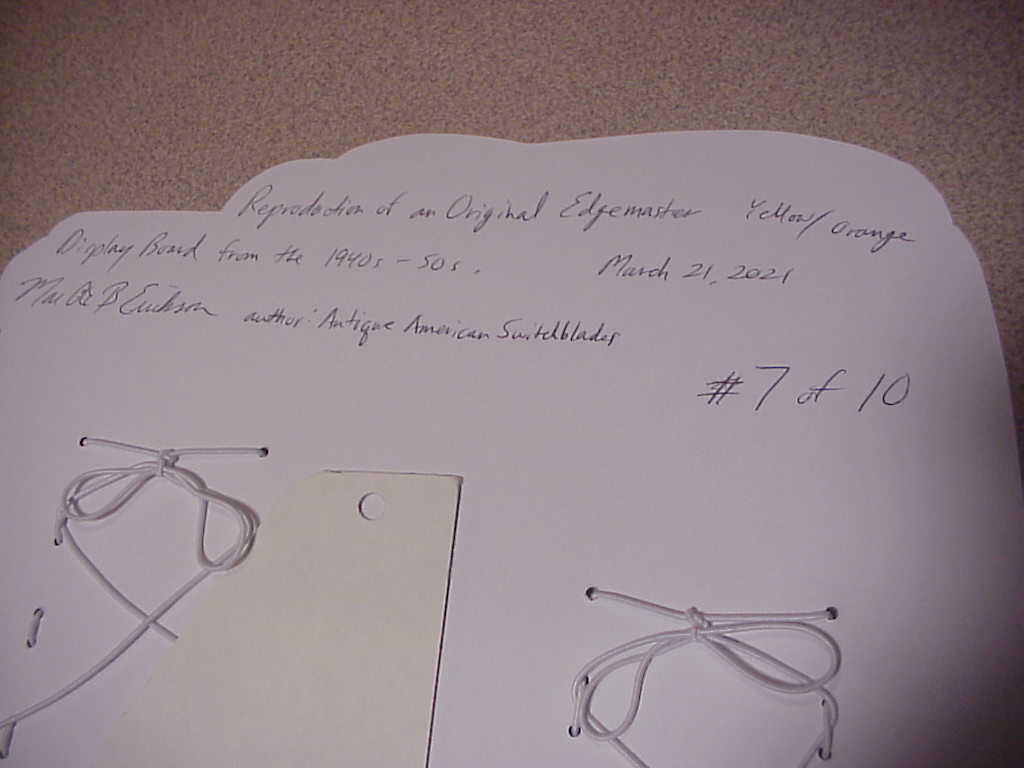 Reproduction of an Original Edgemaster Yellow/Orange
Display Board from the 1940s - 50s. March 21, 2021
B Erickson author: Antique American Switchblades
#7 of 10